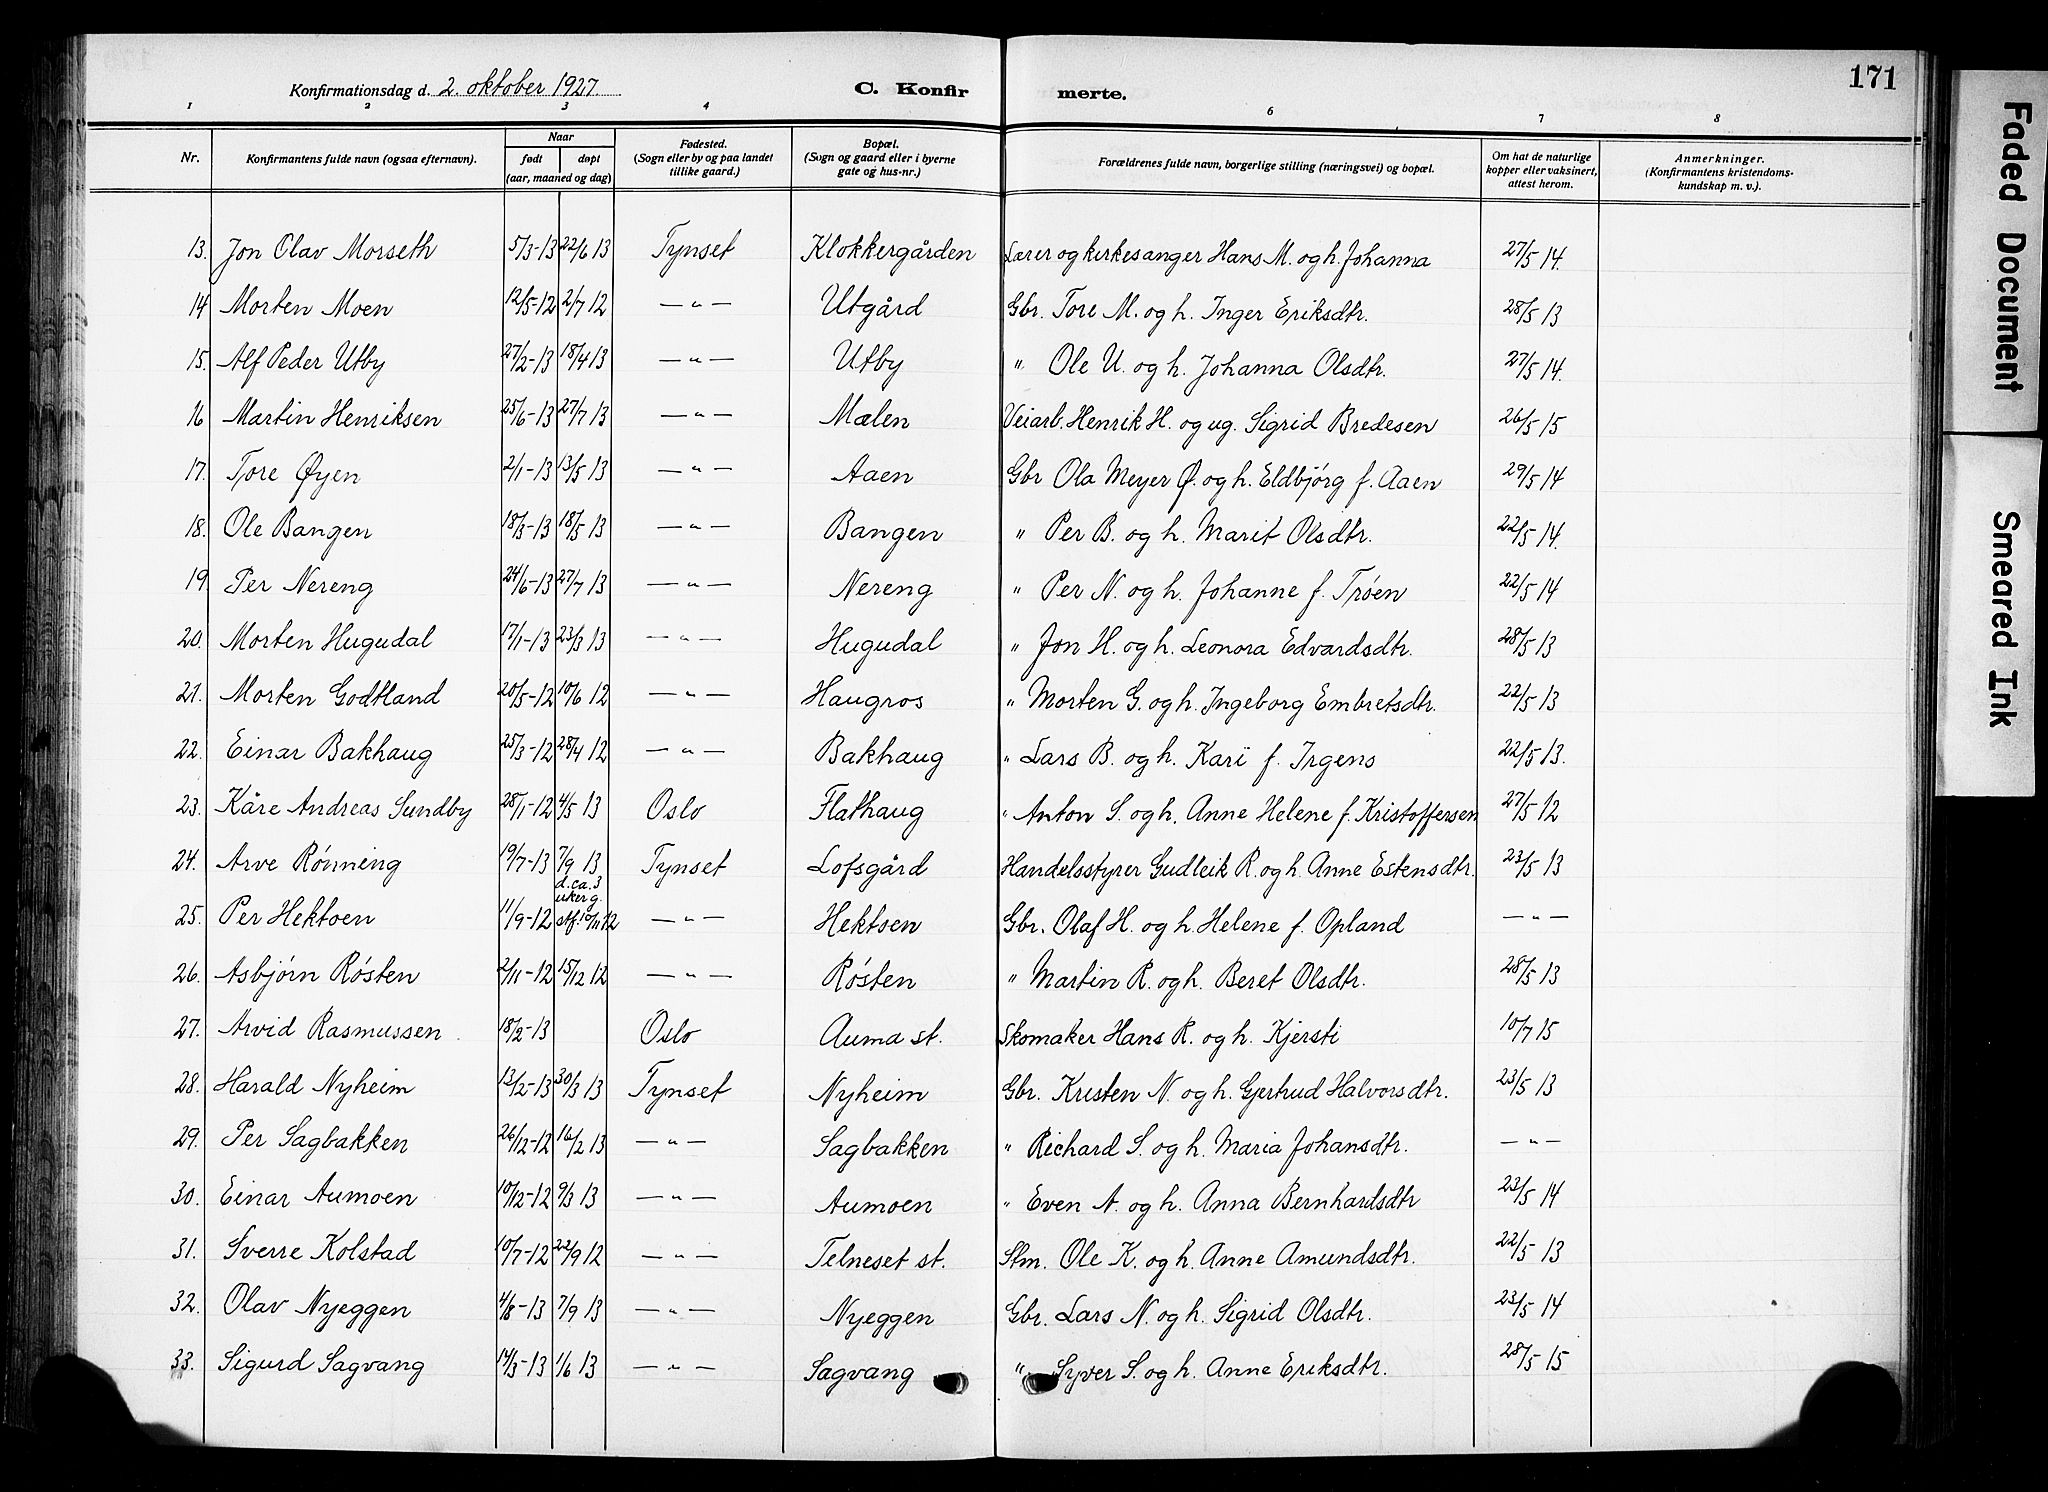 171
Konfirmationsdag d. 2. oktober 1927.
C. Konfirmerte.
1 2 3 4 6 7 8
Nr. Konfirmantens fulde navn (ogsaa efternavn). Naar født døpt (aar, maaned og dag) Fødested. (Sogn eller by og paa landet tillike gaard.) Bopæl. (Sogn og gaard eller i byerne gate og hus-nr.) Forældrenes fulde navn, borgerlige stilling (næringsvei) og bopæl. Om hat de naturlige kopper eller vaksinert, attest herom. Anmerkninger. (Konfirmantens kristendomskundskap m. v.).
13. Jon Olav Morseth 5/3-13 22/6 13 Tynset Klokkergården Lærer og kirkesanger Hans M. og h. Johanna 27/5 14.
14 Morten Moen 12/5-12 2/7 12 —〃— Utgård Gbr. Tore M. og h. Inger Eriksdtr. 28/5 13
15. Alf Peder Utby 27/2-13 18/4 13 —〃— Utby 〃 Ole U. og h. Johanna Olsdtr. 27/5 14.
16 Martin Henriksen 25/6-13 27/7 13 —〃— Mælen Veiarb. Henrik H. og ug. Sigrid Bredesen 26/5 15
17. Tore Øyen 2/1-13 13/5 13 —〃— Aaen Gbr Ola Meyer Ø. og h. Eldbjörg f. Aaen 29/5 14
18. Ole Bangen 18/3-13 18/5 13 —〃— Bangen 〃 Per B. og h. Marit Olsdtr. 22/5 14.
19 Per Nereng 24/6-13 27/7 13 —〃— Nereng 〃 Per N. og h. Johanne f. Trøen 22/5 14
20. Morten Hugudal 17/1-13 23/3 13 —〃— Hugudal 〃 Jon H. og h. Leonora Edvardsdtr. 28/5 13
21. Morten Godtland 20/5-12 10/6 12 —〃— Haugros 〃 Morten G. og h. Ingeborg Embretsdtr. 22/5 13
22. Einar Bakhaug 25/3-12 28/4 12 —〃— Bakhaug 〃 Lars B. og h. Kari f. Irgens 22/5 13.
23. Kåre Andreas Sundby 28/1-12 4/5 13 Oslo Flathaug 〃 Anton S. og h. Anne Helene f. Kristoffersen 27/5 12
24. Arve Rönning 19/7-13 7/9 13 Tynset Lofsgård Handelsstyrer Gudleik R. og h. Anne Estensdtr. 23/5 13
d. ca. 3
uker g.
25. Per Hektoen 11/9-12 stf. 10/11 12 —〃— Hektoen Gbr. Olaf H. og h. Helene f. Opland —〃—
26. Asbjörn Rösten 2/11-12 15/12 12 —〃— Rösten 〃 Martin R. og h. Beret Olsdtr. 28/5 13
27. Arvid Rasmussen 18/2-13 Oslo Auma st. Skomaker Hans R. og h. Kjersti 10/7 15
28. Harald Nyheim 13/2-13 30/3 13 Tynset Nyheim Gbr. Kristen N. og h. Gjertrud Halvorsdtr. 23/5 13
29. Per Sagbakken 26/12-12 16/2 13 —〃— Sagbakken 〃 Richard S. og h. Maria Johansdtr. —〃—
30. Einar Aumoen 10/12-12 9/3 13 —〃— Aumoen 〃 Even A. og h. Anna Bernhardsdtr 23/5 14
31. Sverre Kolstad 10/7-12 22/9 12 —〃— Telneset st. Stm. Ole K. og h. Anne Amundsdtr. 22/5 13
32. Olav Nyeggen 4/8-13 7/9 13 —〃— Nyeggen Gbr. Lars N. og h. Sigrid Olsdtr. 23/5 14
33. Sigurd Sagvang 14/3-13 1/6 13 —〃— Sagvang 〃 Syver S. og h. Anne Eriksdtr. 28/5 15
Faded Document
Smeared Ink